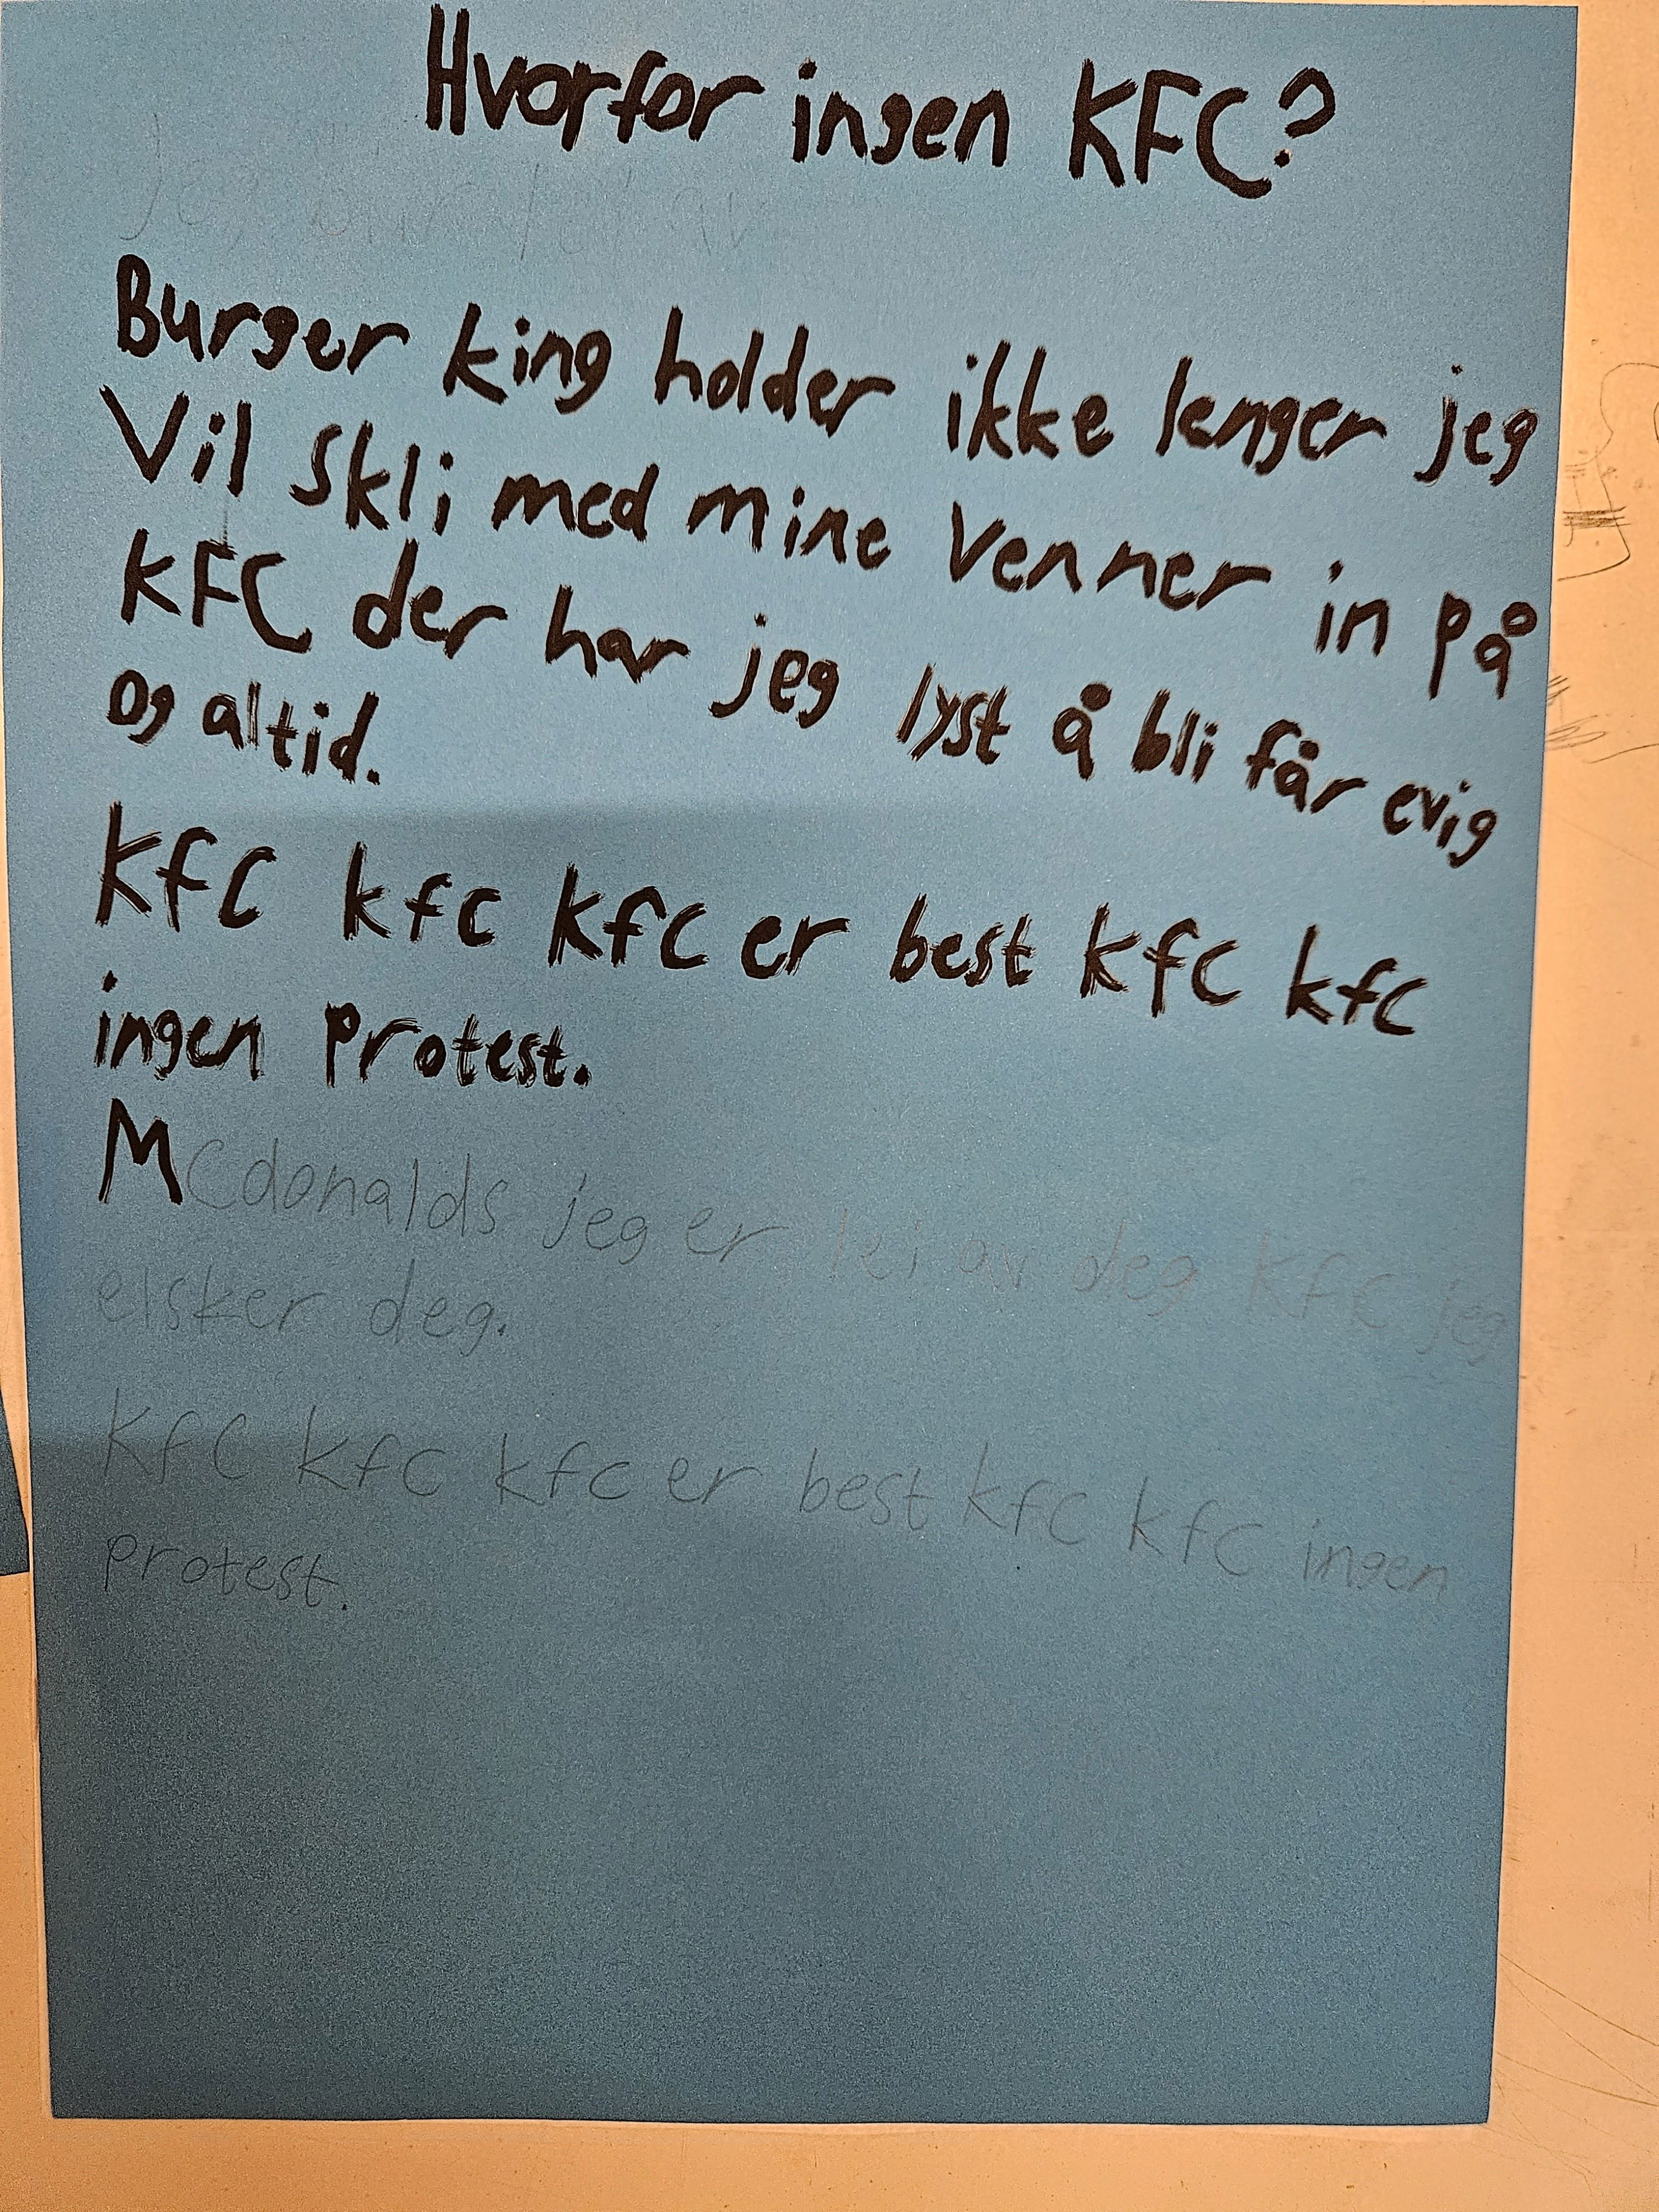 Hvorfor ingen KFC?
Jeg av
Burger king holder ikke lenger jeg
Vil skli med mine venner in på
KFC der har jeg lyst å bli får evig
og altid.
Kfc kfc kfc er best kfc kfc
ingen protest.
Mcdonalds jeg er lei av deg kfc jeg
elsker deg.
Kfc kfc kfc er best kfc kfc ingen
protest.